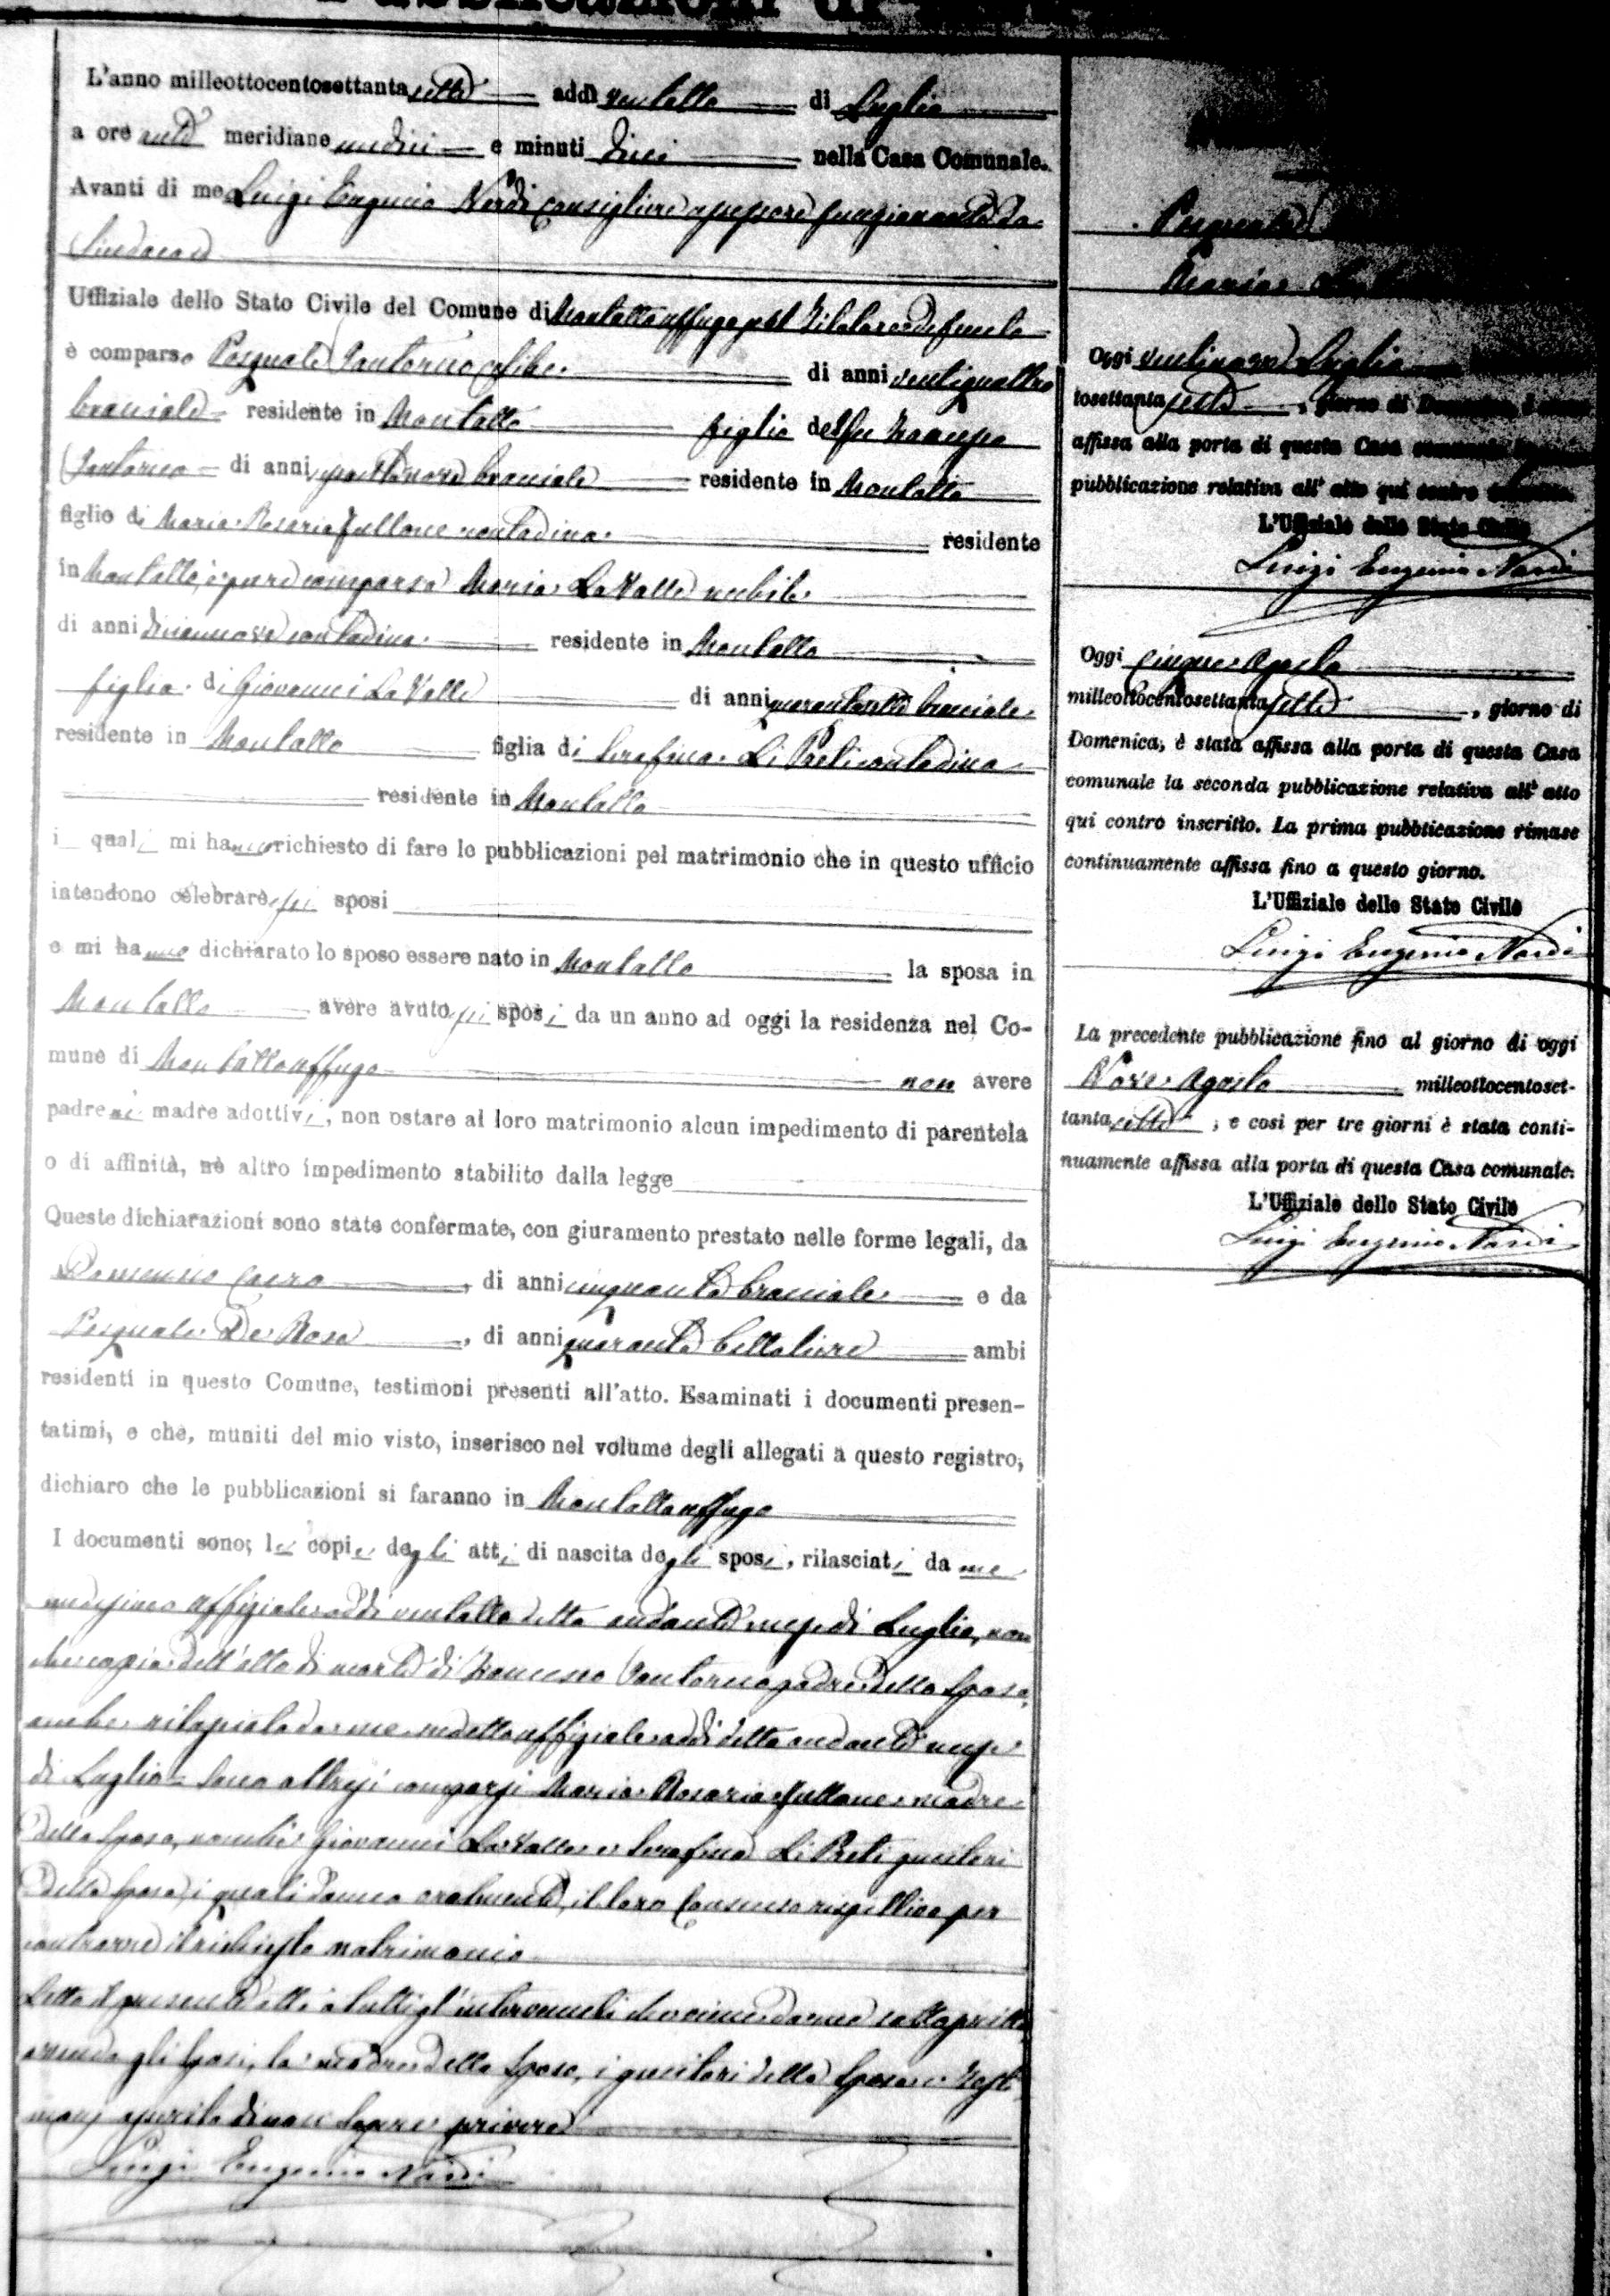 Pubblicazioni di
L'anno milleottocentosettantasette addì ventotto di Luglio
a ore anti meridiane undici e minuti dieci nella Casa Comunale.
Avanti di me Luigi Eugenio Nardi Consigliere assessore funzionante da
Sindaco
Uffiziale dello Stato Civile del Comune di Montaltouffugo pel titolare defunto
è comparso Pasquale Santorno celibe di anni ventiquattro
bracciale residente in Montalto figlio del fu Francesco
Santorno di anni bracciale residente in Montalto
figlio di Maria Rosaria Fullone contadina residente
in Montalto, è pure comparsa Maria La Valle nubile
di anni diciannove contadina residente in Montalto
figlia di Giovanni La Valle di anni bracciale
residente in Montalto figlia di Serafina Li Preti contadina
residente in Montalto
i quali mi hanno richiesto di fare le pubblicazioni pel matrimonio che in questo ufficio
intendono celebrare essi sposi
e mi hanno dichiarato lo sposo essere nato in Montalto la sposa in
Montalto avere avuto essi sposi da un anno ad oggi la residenza nel Co-
mune di Montaltouffugo non avere
padre nè madre adottivi, non ostare al loro matrimonio alcun impedimento di parentela
o di affinità, nè altro impedimento stabilito dalla legge
Queste dichiarazioni sono state confermate, con giuramento prestato nelle forme legali, da
Domenico di anni cinquanta bracciale e da
Pasquale De Rose, di anni quaranta bettoliere ambi
residenti in questo Comune, testimoni presenti all'atto. Esaminati i documenti presen-
tatimi, e che, muniti del mio visto, inserisco nel volume degli allegati a questo registro,
dichiaro che le pubblicazioni si faranno in Montaltouffugo
I documenti sono; le copie degli atti di nascita degli sposi, rilasciati da me
medesimo uffiziale addì ventotto detto andante mese di Luglio, non
che copia dell'atto di morte di Francesco Santorno padre dello sposo,
anche rilasciata da me sudetto uffiziale addì detto andante mese
di Luglio - Sono altresì comparsi Maria Rosaria Fullone madre
dello sposo, nonchè Giovanni La Valle e Serafina Li Preti genitori
della sposa, i quali danno oralmente il loro consenso rispettivo per
contrarre il richiesto matrimonio
Letto il presente atto a tutti gl'intervenuti che viene da me sottoscritto
avendo gli sposi, la madre dello sposo, i genitori della sposa e testi
monj asserito di non sapere scrivere
Luigi Eugenio Nardi
Pasquale
Maria
Oggi ventinove Luglio
tosettantasette, giorno di Domenica, è
affissa alla porta di questa Casa comunale
pubblicazione relativa all' atto qui contro
L'Uffiziale dello Stato Civile
Luigi Eugenio Nardi
Oggi cinque Agosto
milleottocentosettantasette, giorno di
Domenica, è stata affissa alla porta di questa Casa
comunale la seconda pubblicazione relativa all' atto
qui contro inscritto. La prima pubblicazione rimase
continuamente affissa fino a questo giorno.
L'Uffiziale dello Stato Civile
Luigi Eugenio Nardi
La precedente pubblicazione fino al giorno di oggi
Nove Agosto milleottocentoset-
tantasette, e così per tre giorni è stata conti-
nuamente affissa alla porta di questa Casa comunale.
L'Uffiziale dello Stato Civile
Luigi Eugenio Nardi